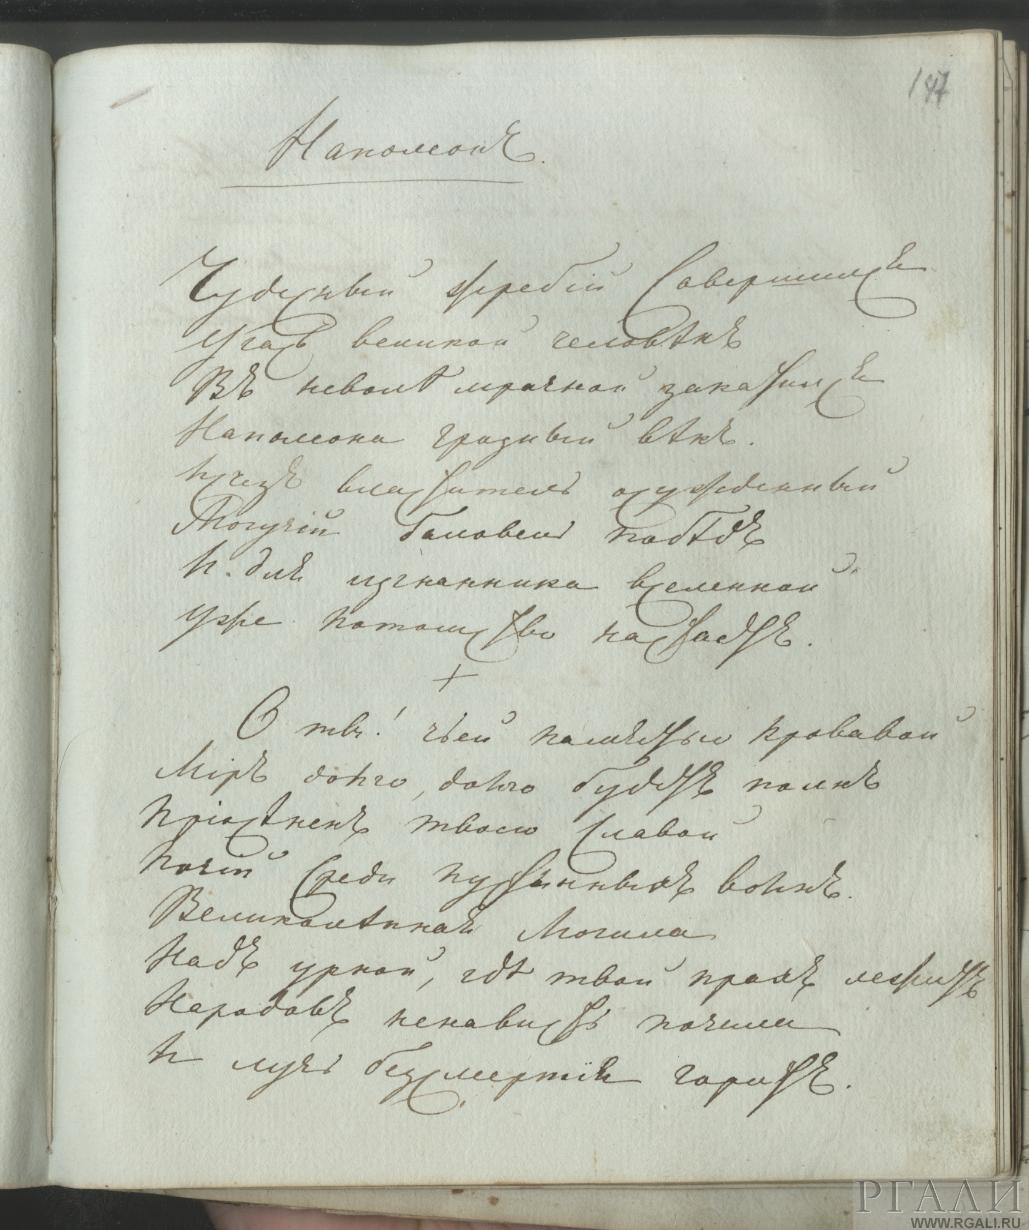 147
Наполеонъ.
Чудесный жребій Совершился
Угасъ великой человѣкъ
Въ неволѣ мрачной закатился
Наполеона грозный вѣкъ.
Изчезъ властитель осужденный
Могучій баловень побѣдъ
И для изгнанника вселенной
Уже потомство настаетъ.
+
О ты! чьей памятью кровавой
Міръ долго, долго будетъ полнъ
Пріосѣненъ твоею Славой
Почій Среди пустынныхъ волнъ.
Великолѣпная Могила
Надъ урной, гдѣ твой прахъ лежитъ
Народовъ ненависть почила
И лучь безсмертія горитъ.
РГАЛИ
WWW.RGALI.RU